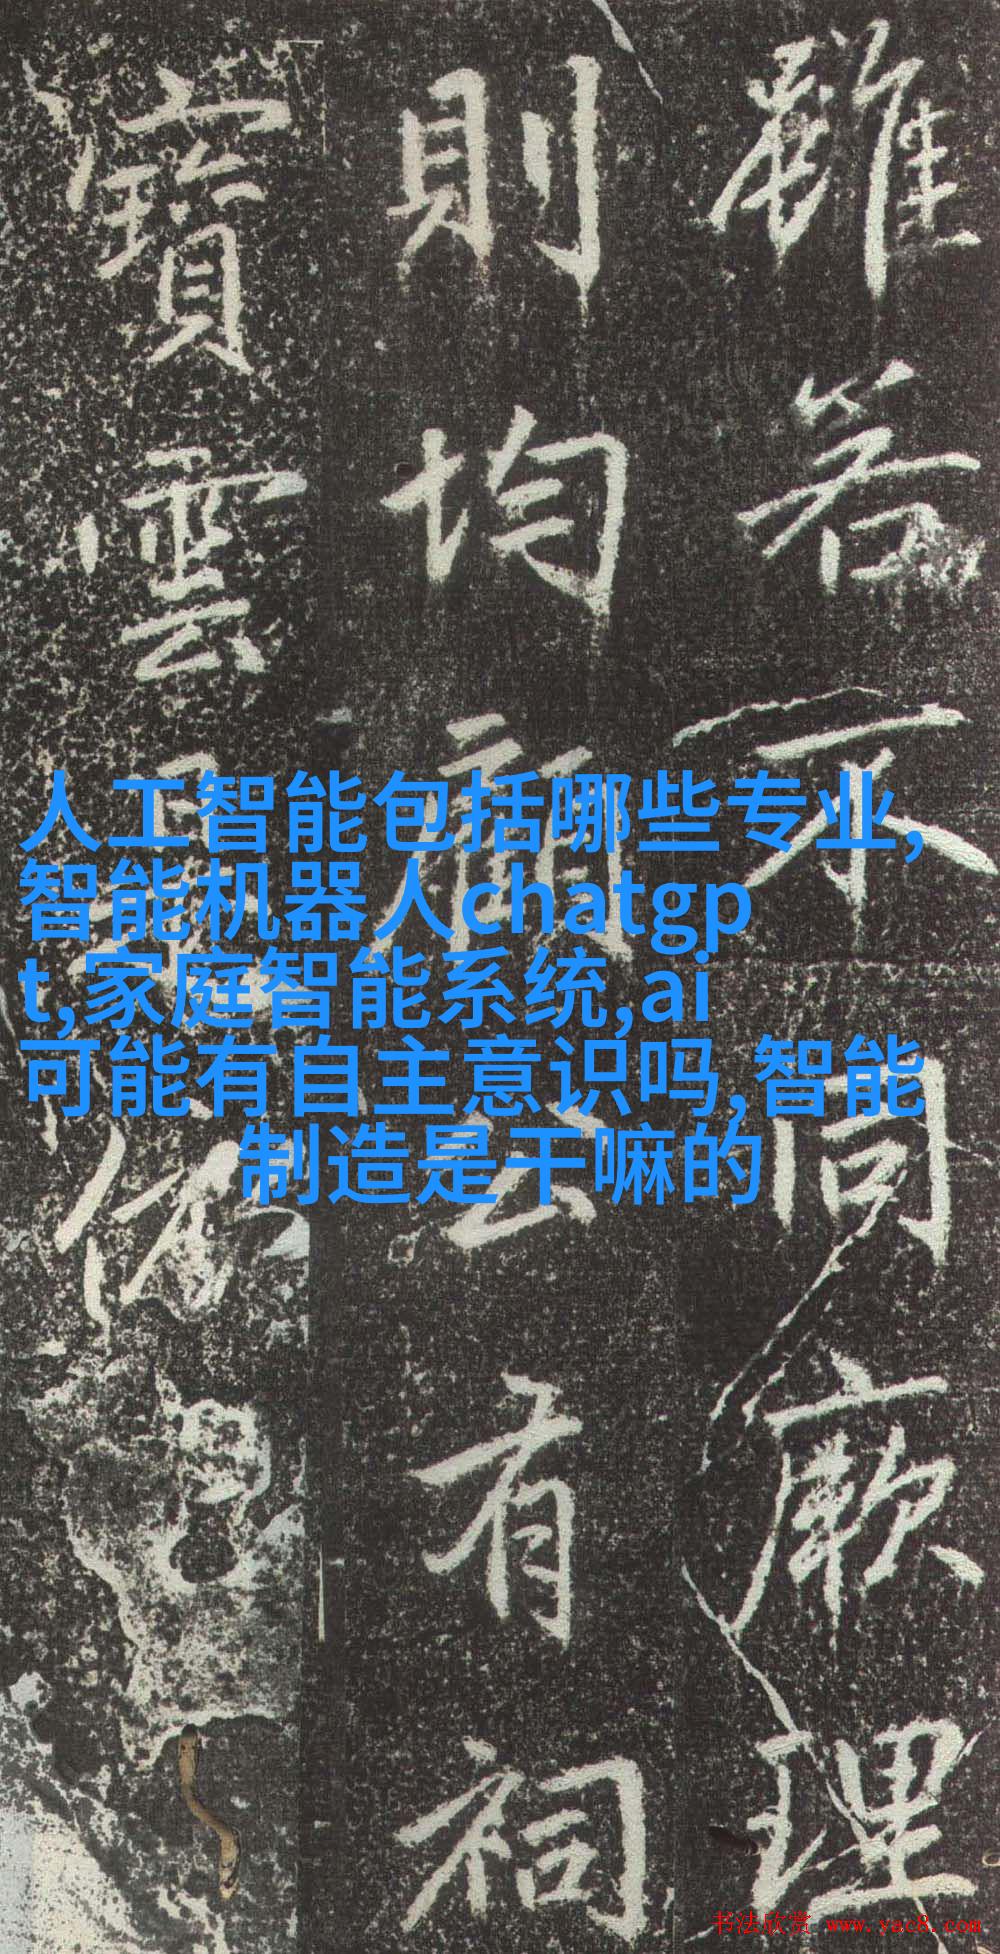 雖若不同厥理
則均廟公有祠
寶雲
人工智能包括哪些专业,
智能机器人chatgp
t,家庭智能系统,ai
可能有自主意识吗,智能
制造是干嘛的
书法欣赏 www.yac8.com